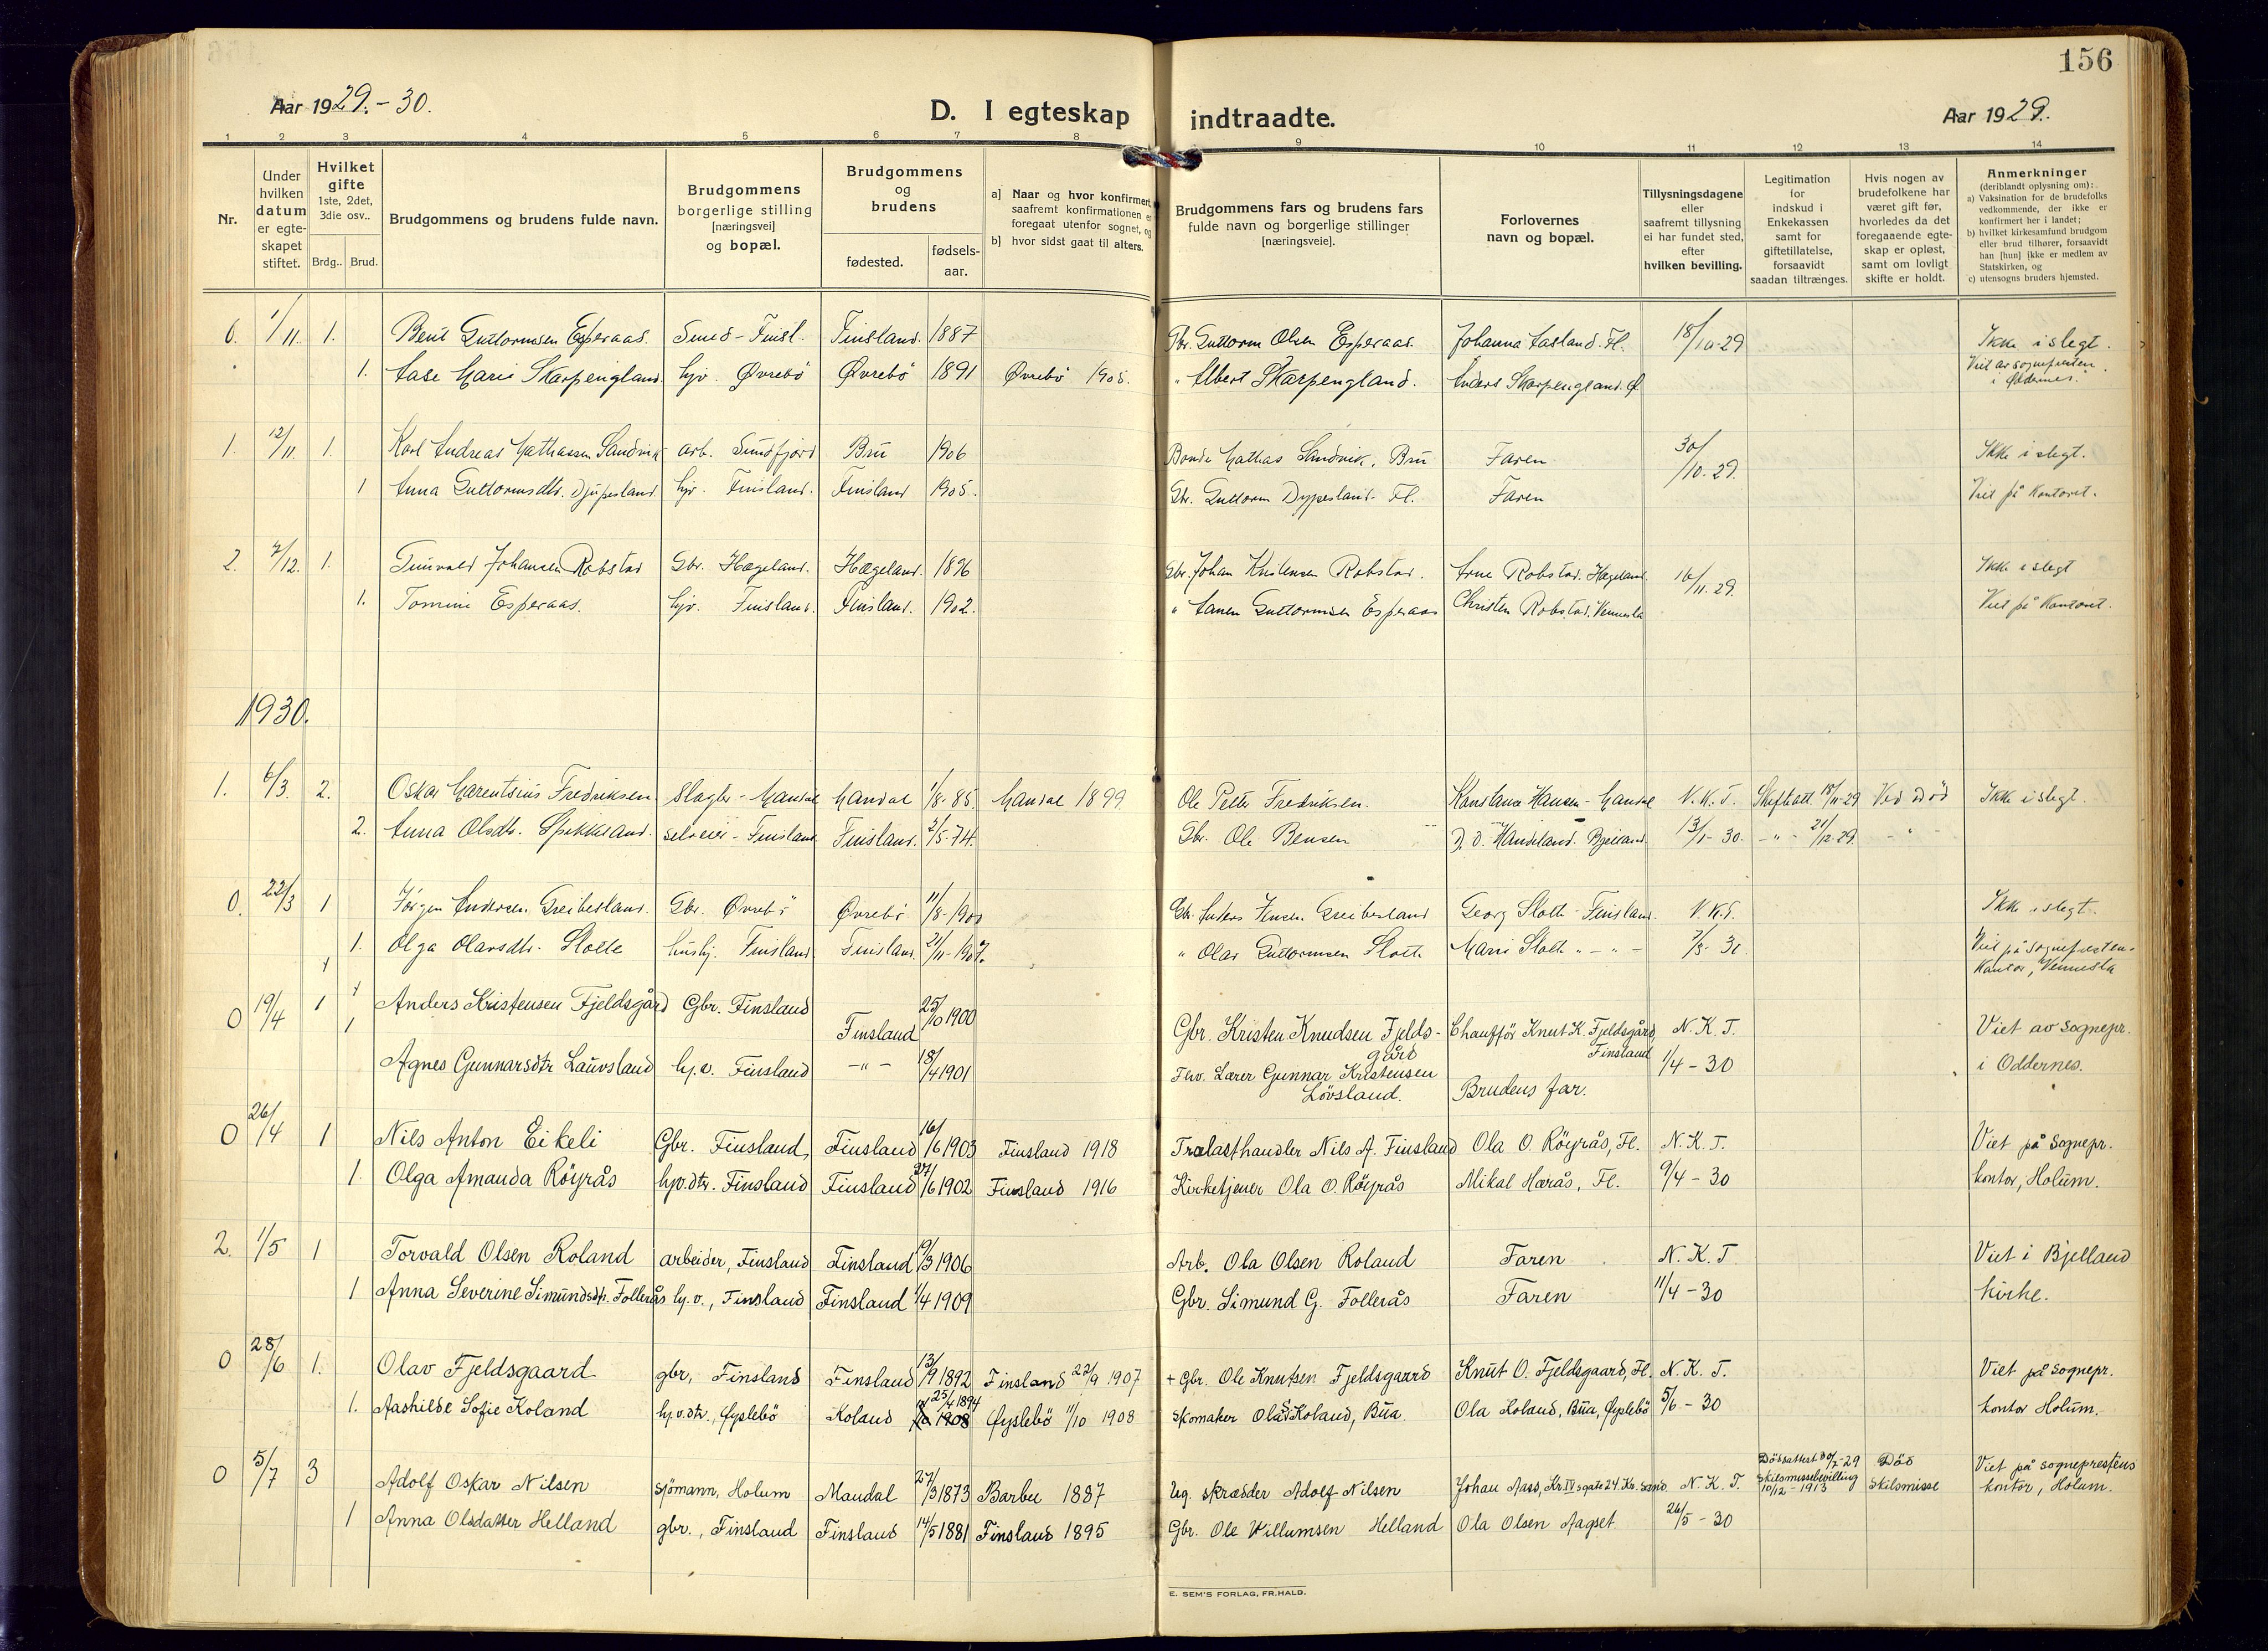 156
Aar 1929.-30.
D. I egteskap indtraadte.
Aar 1929.
1 2 3 4 5 6 7 8 9 10 11 12 13 14
Nr.
Under hvilken datum er egte-skapet stiftet.
Hvilket gifte 1ste, 2det, 3die osv..
Brdg.. Brud.
Brudgommens og brudens fulde navn.
Brudgommens borgerlige stilling [næringsvei] og bopæl.
Brudgommens og brudens
fødested. fødsels-aar.
a] Naar og hvor konfirmert, saafremt konfirmationen er foregaat utenfor sognet, og
b] hvor sidst gaat til alters.
Brudgommens fars og brudens fars fulde navn og borgerlige stillinger [næringsveie].
Forlovernes navn og bopæl.
Tillysningsdagene eller saafremt tillysning ei har fundet sted, efter hvilken bevilling.
Legitimation for indskud i Enkekassen samt for giftetillatelse, forsaavidt saadan tiltrænges.
Hvis nogen av brudefolkene har været gift før, hvorledes da det foregaaende egte-skap er opløst, samt om lovligt skifte er holdt.
Anmerkninger (deriblandt oplysning om):
a) Vaksination for de brudefolks vedkommende, der ikke er konfirmert her i landet;
b) hvilket kirkesamfund brudgom eller brud tilhører, forsaavidt han [hun] ikke er medlem av Statskirken, og
c) utensogns bruders hjemsted.
0. 1/11. 1. Bent Guttormsen Esperaas. Smed - Finsl. Finsland. 1887 Gbr. Guttorm Olsen Esperaas. Johanna Aasland. Fl. 18/10-29 Ikke i slegt.
1. Aase Marie Skarpengland. hjv. Øvrebö Øvrebö 1891 Øvrebö 1905. " Albert Skarpengland. Anders Skarpengland. Ø Viet av sognepresten i Oddernes.
1. 12/11. 1. Karl Andreas Mathiassen Sandvik arb. Sundfjord Bru 1906 Bonde Mathias Sandvik, Bru Faren 30/10-29. Ikke i slegt.
1 Anna Guttormsdtr. Djupesland. hjv. Finsland. Finsland 1905. Gbr. Guttorm Dypesland - Fl. Faren Viet på Kontoret.
2. 7/12. 1. Gunvald Johansen Robstad Gbr. Hægeland. Hægeland. 1896 Gbr. Johan Kristensen Robstad. Arne Robstad. Hægeland. 16/11-29. Ikke i slegt
1. Tomine Esperaas. hjv. Finsland. Finsland. 1902. " Aanen Guttormsen Esperaas Christen Robstad. Vennesla Viet på Kontoret.
1930.
1. 6/3. 2. Oskar Marentsius Fredriksen slagter - Mandal Mandal 1/8-85. Mandal 1899 Ole Peter Fredriksen. Konstanse Hansen - Mandal N.K.T. Skifteatt. 18/11-29 Ved död Ikke i slegt.
2. Anna Olsdtr. Spikkeland. selveier - Finsland Finsland. 2/5-74. Gbr. Ole Bensen Bjelland. 13/1-30. -"- 21/12-29. -"-
0. 22/3 1 Jörgen Andersen Greibesland. Gbr. Øvrebö Øvrebö 11/8-1900 Gbr. Anders Jensen Greibesland Georg Slotte - Finsland. N.K.T. Ikke i slegt.
1. Olga Olavsdtr. Slotte hushj. Finsland Finsland. 21/11-1907. " Olav Guttormsen Slotte Marie Slotte "-"- 7/3-30. Viet på sogneprestens Kontor, Vennesla
0 19/4 1 Anders Kristensen Fjeldsgård Gbr. Finsland Finsland 25/10 1900 Gbr. Kristen Knudsen Fjelds-gård Chaufför Knut K. Fjeldsgård, Finsland N.K.T. Viet av sognepr.
1 Agnes Gunnarsdtr Lauvsland hj.v. Finsland -"- 18/4 1901 Fhv. Lærer Gunnar Kristensen Lövsland. Brudens far. 1/4-30 i Oddernes.
0 26/4 1 Nils Anton Eikeli Gbr. Finsland, Finsland 16/6 1903 Finsland 1918 Trælasthandler Nils A. Finsland Ola O. Röyrås, Fl. N.K.T. Viet på Sognepr.
1. Olga Amanda Röyrås hjv.dtr. Finsland Finsland 27/6 1902 Finsland 1916 Kirketjener Ola O. Röyrås Mikal Hærås, Fl. 9/4-30 kontor, Holum.
2. 1/5 1 Torvald Olsen Roland arbeider, Finsland Finsland 19/3 1906 Arb. Ola Olsen Roland Faren N.K.T Viet i Bjelland
1 Anna Severine Simundsdtr. Follerås hj.v., Finsland Finsland 1/4 1909 Gbr. Simund G. Follerås Faren 11/4-30 kirke.
0 28/6 1. Olav Fjeldsgaard gbr, Finsland Finsland 13/9 1892 Finsland 22/9 1907 + Gbr. Ole Knutsen Fjeldsgaard Knut O. Fjeldsgaard, Fl. N.K.T. Viet på sognepr.
1. Aashilde Sofie Koland hj.v.dtr., Øyslebö Koland 25/4 1894 Øyslebö 11/10 1908 Skomaker Olav Koland, Bua. Ola Koland, Bua, Øyslebö 5/6-30 kontor Holum.
0 5/7 3 Adolf Oskar Nilsen Sjömann, Holum Mandal 27/3 1873 Barbu 1887 Ug. skrædder Adolf Nilsen Johan Aass, Kr. IVs gate 24, Kr. Sand. N.K.T. Dödsattest 30/7-29 Skilsmissebevilling 10/12-1913 Död Skilsmisse Viet på sogneprestens kontor, Holum.
1 Anna Olsdatter Helland gbr., Finsland Finsland 14/5 1881 Finsland 1895 Gbr. Ole Villumsen Helland Ola Olsen Aagset 26/5-30
E. SEM'S FORLAG, FR.HALD.